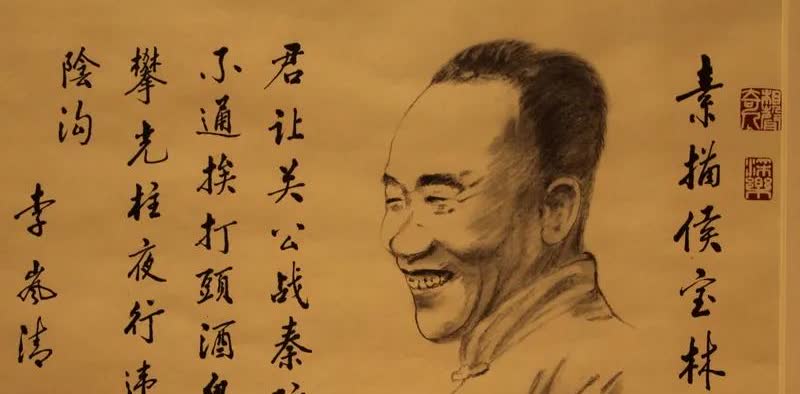 素描侯宝林
君让关公战秦
不通挨打頭酒
攀光柱夜行违
陰沟
李嵐清